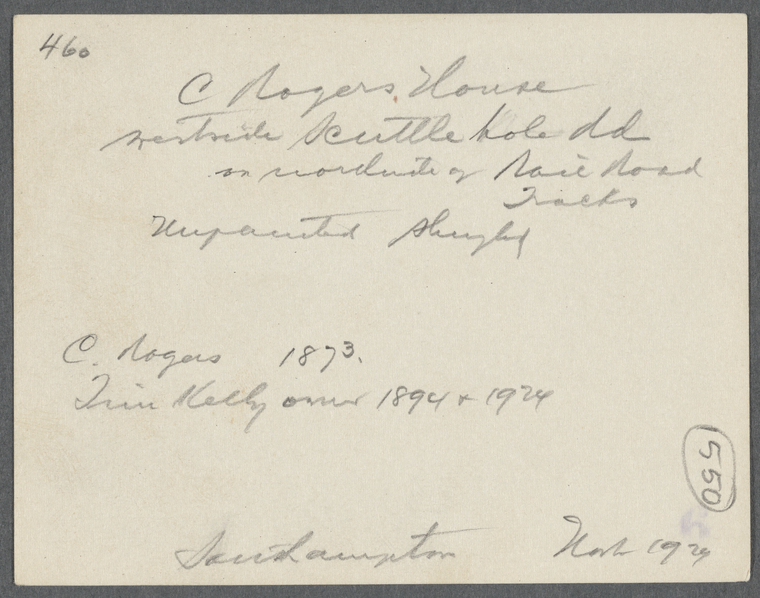 460
C Rogers House
westside Scuttle hole Rd
on northside of Rail Road
Tracks
Unpainted Shingled
C. Rogers 1873.
Tim Kelly owner 1894 + 1924
550
Southampton Nov 1924